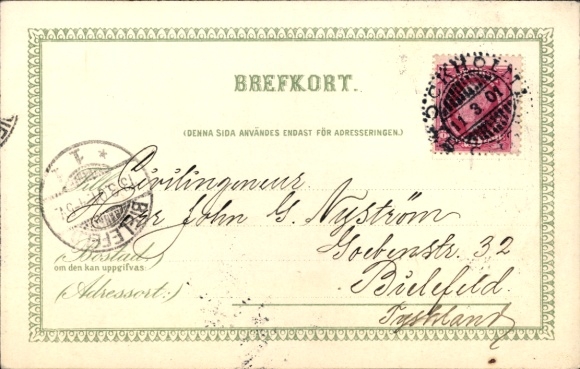 BREFKORT.
STOCKHOLM
11 3 01
(DENNA SIDA ANVÄNDES ENDAST FÖR ADRESSERINGEN.)
Till Civilingeneur
Herr John G. Nyström
Goebenstr. 32
(Bostad
om den kan uppgifvas:)
Bielefeld.
(Adressort:)
Tyskland
BIELEFELD